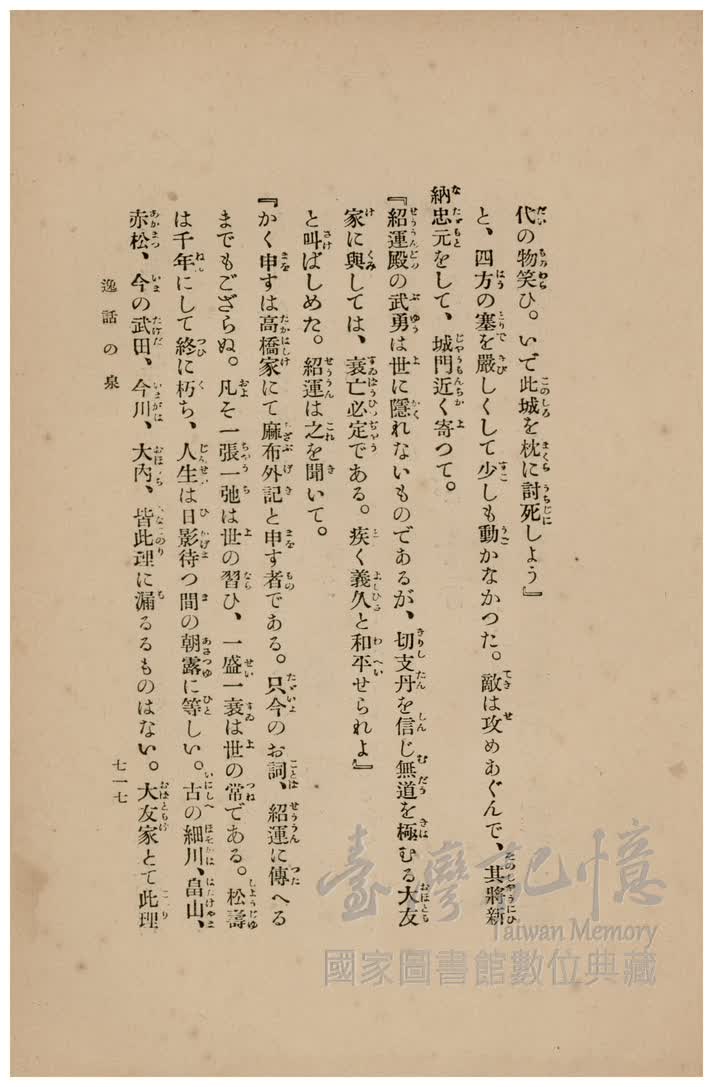 代の物笑ひ。いで此城を枕に討死しよう』
と、四方の塞を嚴しくして少しも動かなかつた。敵は攻めあぐんで、其將新
納忠元をして、城門近く寄つて。
『紹運殿の武勇は世に隱れないものであるが、切支丹を信じ無道を極むる大友
家に與しては、衰亡必定である。疾く義久と和平せられよ』
と叫ばしめた。紹運は之を聞いて。
『かく申すは高橋家にて麻布外記と申す者である。只今のお詞、紹運に傳へる
までもござらぬ。凡そ一張一弛は世の習ひ、一盛一衰は世の常である。松壽
は千年にして終に朽ち、人生は日影待つ間の朝露に等しい。古の細川、畠山、
赤松、今の武田、今川、大内、皆此理に漏るるものはない。大友家とて此理
逸話の泉
七一七
臺灣記憶
Taiwan Memory
國家圖書館數位典藏